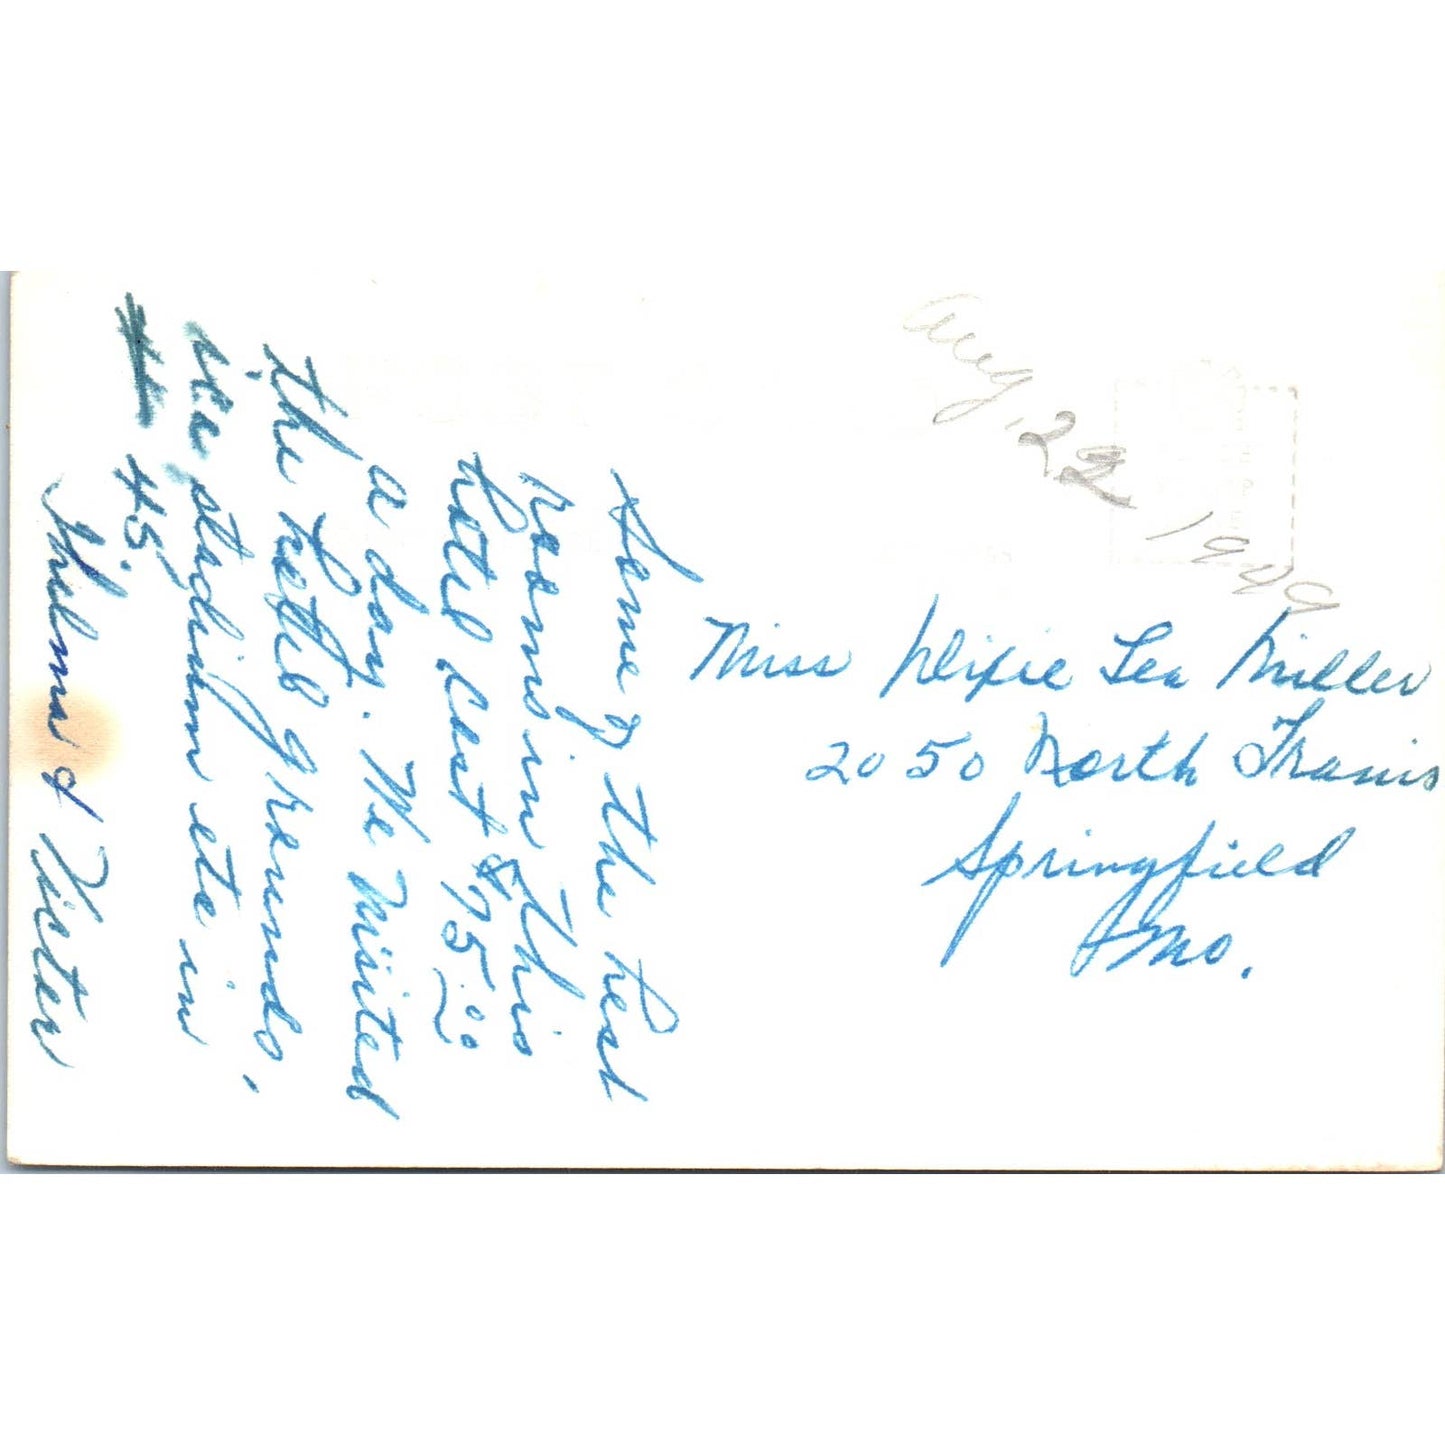 Some of the best
rooms in this
hotel cost $75.00
a day. We visited
the hotel grounds,
ice stadium etc in
45.
Thelma & Victer
Aug. 22, 1949
Miss Dixie Lea Miller
2050 North Travis
Springfield
Mo.